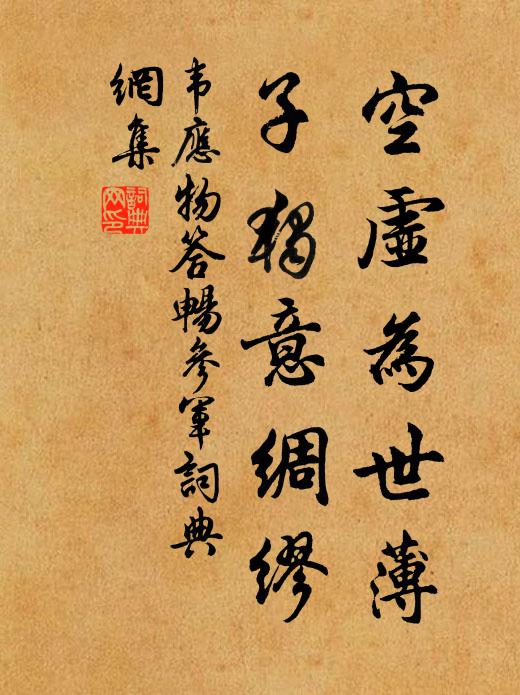 空虛為世薄
子獨意綢繆
韦應物答暢參軍詞典
網集
詞典
网印